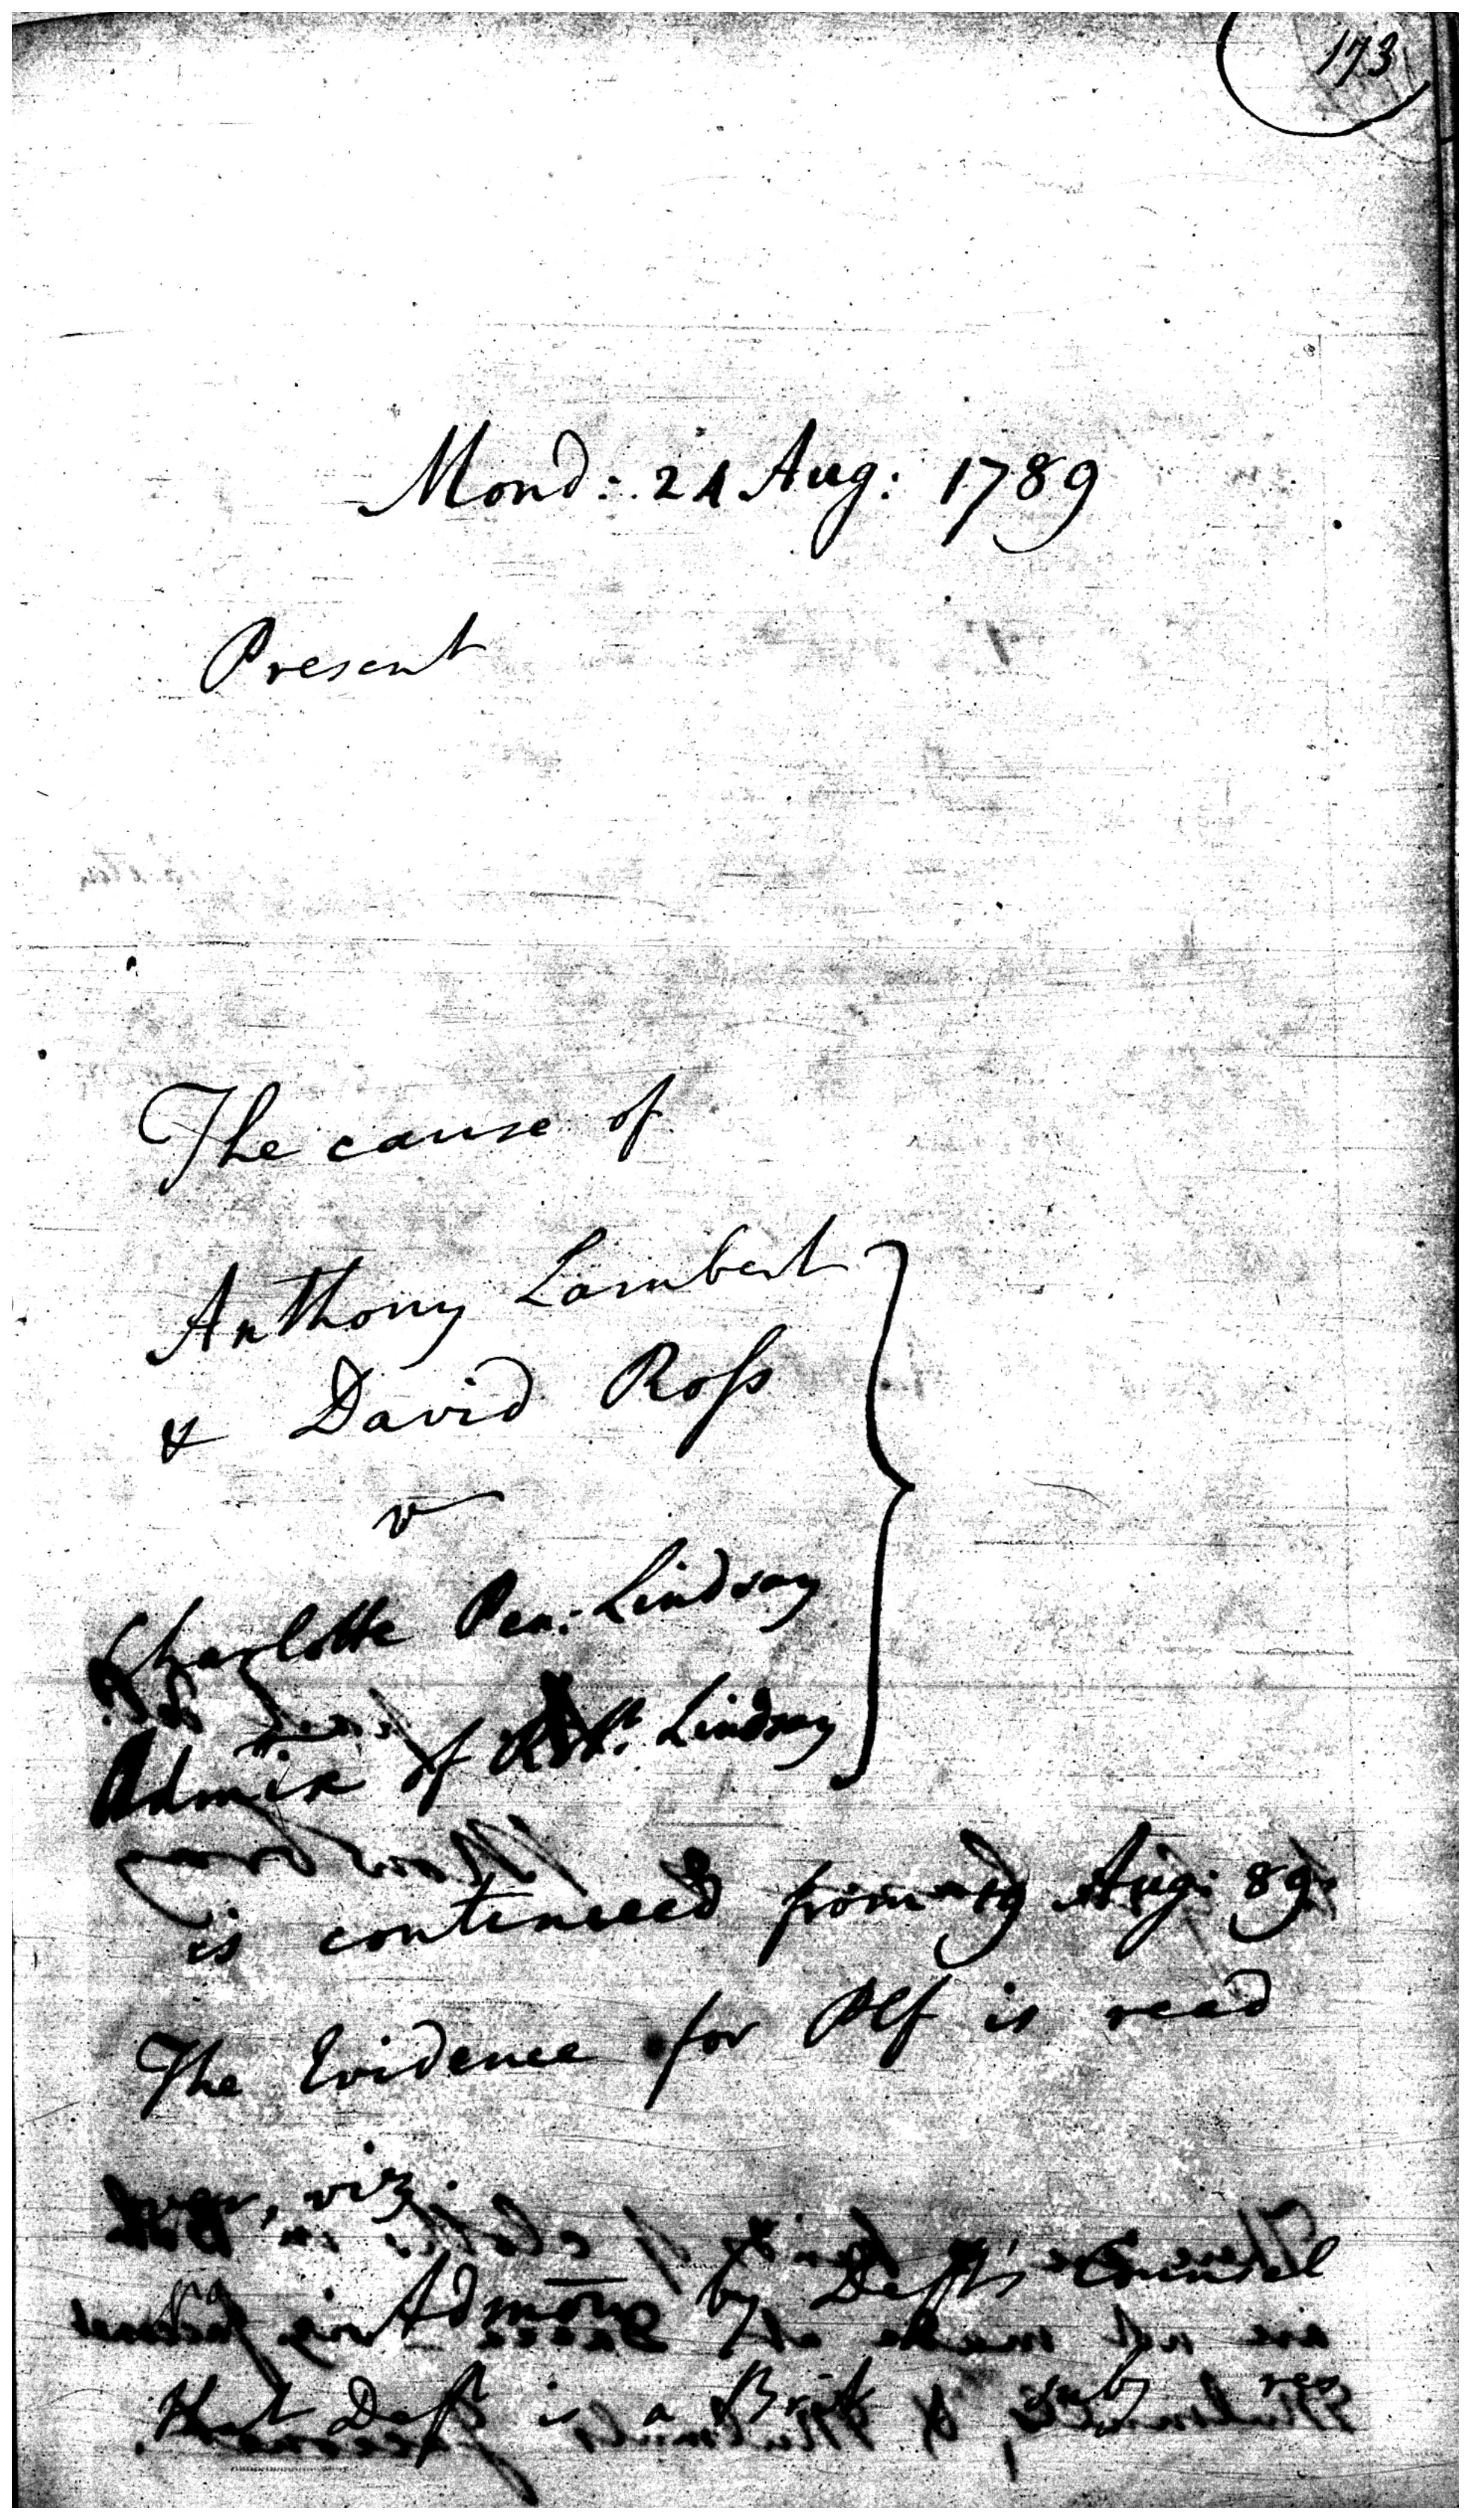 173
Mond: 24 Aug: 1789
Present
The cause of
Anthony Lambert
& David Ross
v
Charlotte Pen: Lindsay
Admix of Robt. Lindsay
is continued from 19 Aug: 89.
The Evidence for Plf is read
over, viz.
Admōn by Defts Counsel
that Deft is a Brit subj res